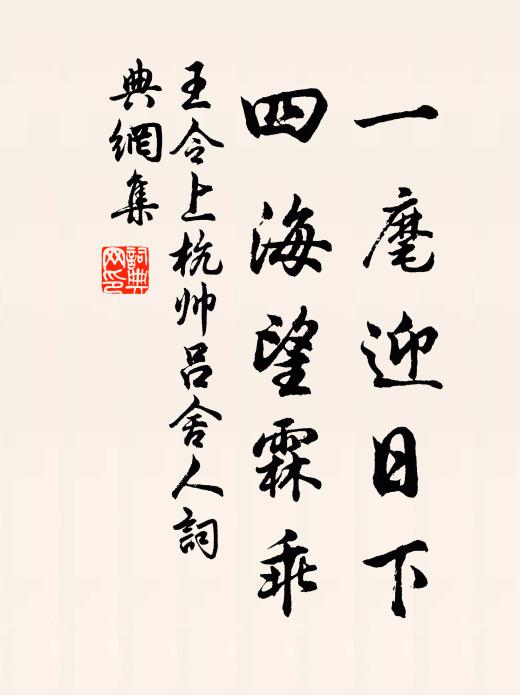 一麾迎日下
四海望霖乖
王令上杭帅吕舍人詞
典網集
詞典網印